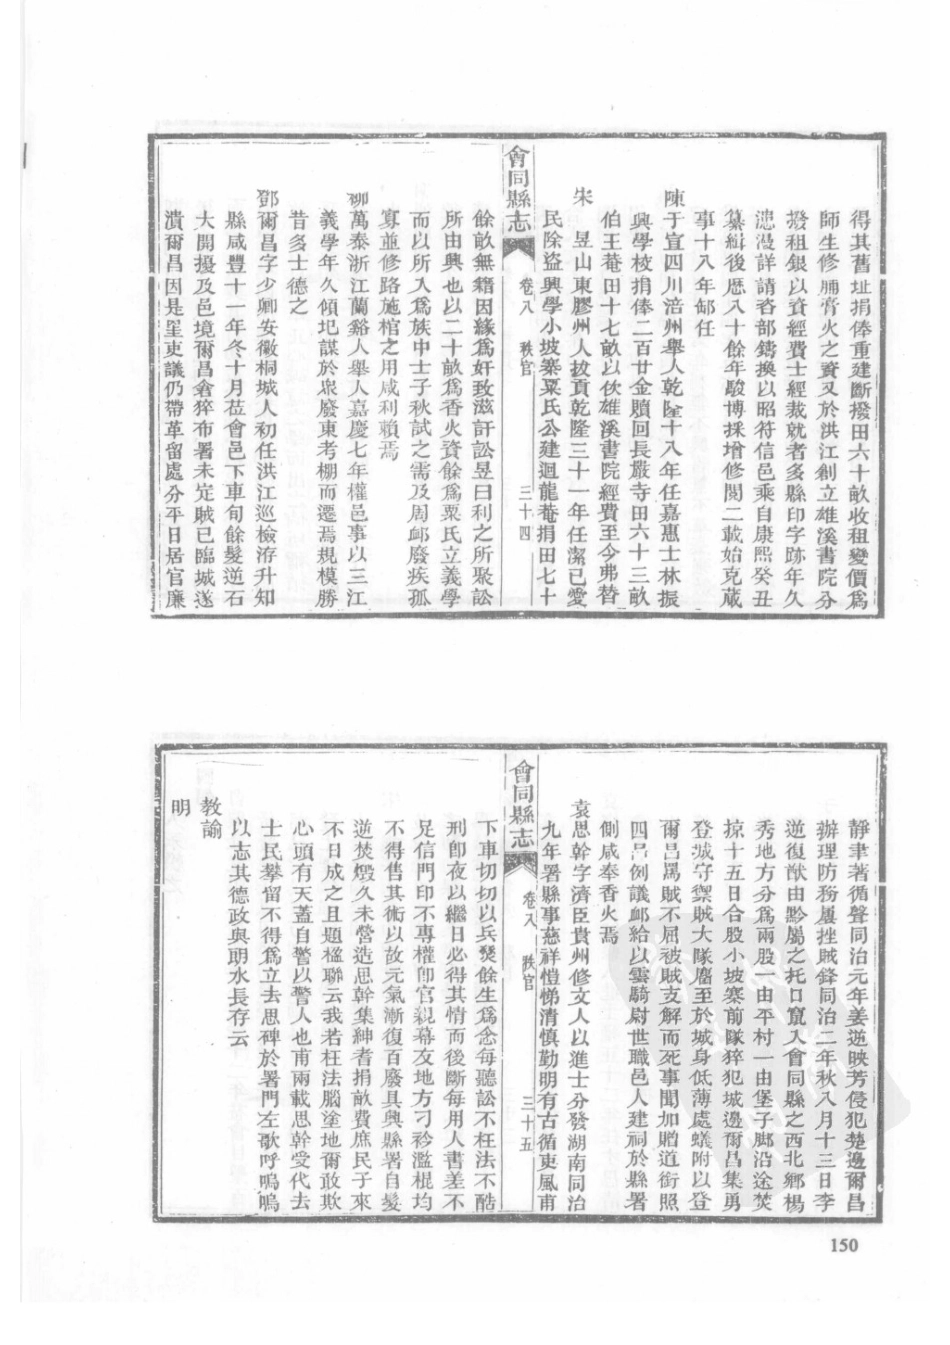 得其舊址捐俸重建斷撥田六十畝收租變價爲
師生修脯膏火之資又於洪江創立雄溪書院分
撥租銀以資經費士經裁就者多縣印字跡年久
漶漫詳請咨部鑄換以昭符信邑乘自康熙癸丑
纂緝後歷八十餘年駿博採增修閱二載始克蕆
事十八年卸任
陳于宣四川涪州舉人乾隆十八年任嘉惠士林振
興學校捐俸二百廿金贖回長嚴寺田六十三畝
伯王菴田十七畝以佽雄溪書院經費至今弗替
朱　昱山東膠州人拔貢乾隆三十一年任潔已愛
民除盜興學小坡寨粟氏公建迴龍菴捐田七十
會同縣志
卷八　秩官　三十四
餘畝無籍因緣爲奸致滋訐訟昱曰利之所聚訟
所由興也以二十畝爲香火資餘爲粟氏立義學
而以所入爲族中士子秋試之需及周邮廢疾孤
寡並修路施棺之用咸利賴焉
柳萬泰浙江蘭谿人舉人嘉慶七年權邑事以三江
義學年久傾圮謀於衆廢東考棚而遷焉規模勝
昔多士德之
鄧爾昌字少卿安徽桐城人初任洪江巡檢洊升知
縣咸豐十一年冬十月莅會邑下車旬餘髮逆石
大開擾及邑境爾昌倉猝布署未定賊已臨城遂
潰爾昌因是罣吏議仍帶革留處分平日居官廉
靜聿著循聲同治元年姜逆映芳侵犯楚邊爾昌
辦理防務屢挫賊鋒同治二年秋八月十三日李
逆復猷由黔屬之托口竄入會同縣之西北鄉楊
秀地方分爲兩股一由平村一由堡子腳沿途焚
掠十五日合股小坡寨前隊猝犯城邊爾昌集勇
登城守禦賊大隊麕至於城身低薄處蟻附以登
爾昌罵賊不屈被賊支解而死事聞加贈道銜照
四品例議邮給以雲騎尉世職邑人建祠於縣署
側咸奉香火焉
袁思幹字濟臣貴州修文人以進士分發湖南同治
九年署縣事慈祥愷悌清慎勤明有古循吏風甫
會同縣志
卷八　秩官　三十五
下車切切以兵燹餘生爲念每聽訟不枉法不酷
刑卽夜以繼日必得其情而後斷每用人書差不
足信門印不專權卽官親幕友地方刁衿濫棍均
不得售其術以故元氣漸復百廢具興縣署自髮
逆焚燬久未營造思幹集紳耆捐畝費庶民子來
不日成之且題楹聯云我若枉法腦塗地爾敢欺
心頭有天蓋自警以警人也甫兩載思幹受代去
士民攀留不得爲立去思碑於署門左歌呼嗚嗚
以志其德政與朗水長存云
教諭
明
150